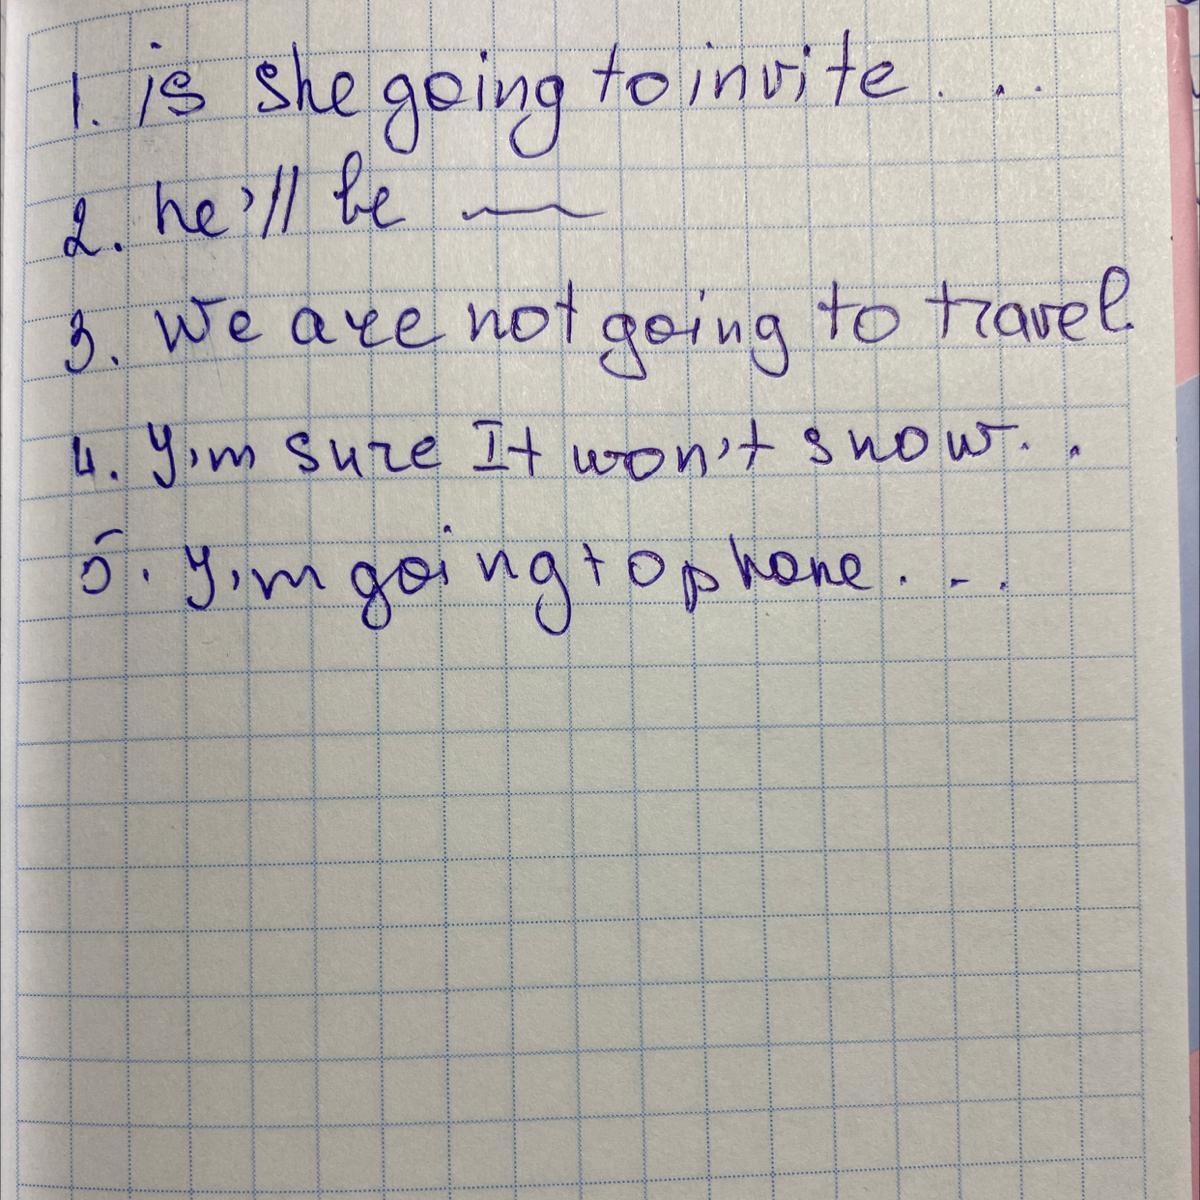 1. is she going to invite . . .
2. he'll be ——
3. We are not going to travel.
4. I'm sure It won't snow. .
5. I'm going to phone. - .